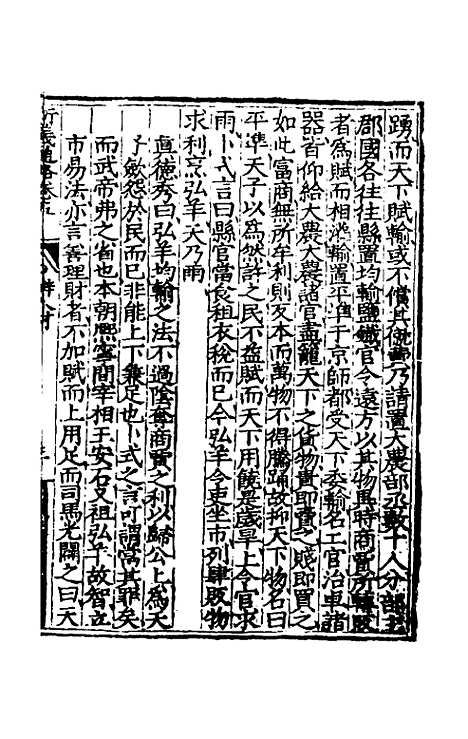 踴而天下賦輸或不償其僦費乃請置大農部丞數十人分部主
郡國各往往縣置均輸鹽鐵官令遠方以其物異時商賈所轉販
者為賦而相灌輸置平準于京師都受天下委輸名工官治車諸
器皆仰給大農大農諸官盡籠天下之貨物貴即賣之賤即買之
如此富商無所牟利則反本而萬物不得騰踊故抑天下物名曰
平準天子以為然許之民不益賦而天下用饒是歲旱上令官求
雨卜式言曰縣官當食租衣稅而已今弘羊令吏坐市列肆販物
求利烹弘羊天乃雨
真德秀曰弘羊均輸之法不過陰奪商賈之利以歸公上為天
子斂怨於民而已非能上下兼足也卜式之言可謂當其罪矣
而武帝弗之省也本朝熙寧間宰相王安石又祖弘羊故智立
市易法亦言善理財者不加賦而上用足而司馬光闢之曰天
衍義通略卷之五
辨人才